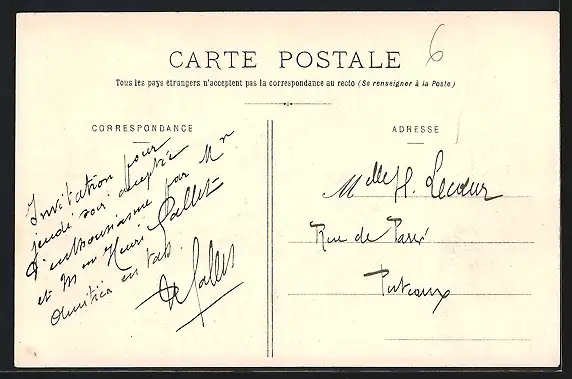 6
CARTE POSTALE
Tous les pays étrangers n'acceptent pas la correspondance au recto (Se renseigner à la Poste)
CORRESPONDANCE
Invitation pour
jeudi soir acceptée
d'enthousiasme par Mr
et Mme Henri Gallet
Amitiés en tas
Gallet
ADRESSE
Melle H. Lecœur
Rue de Paris
Puteaux